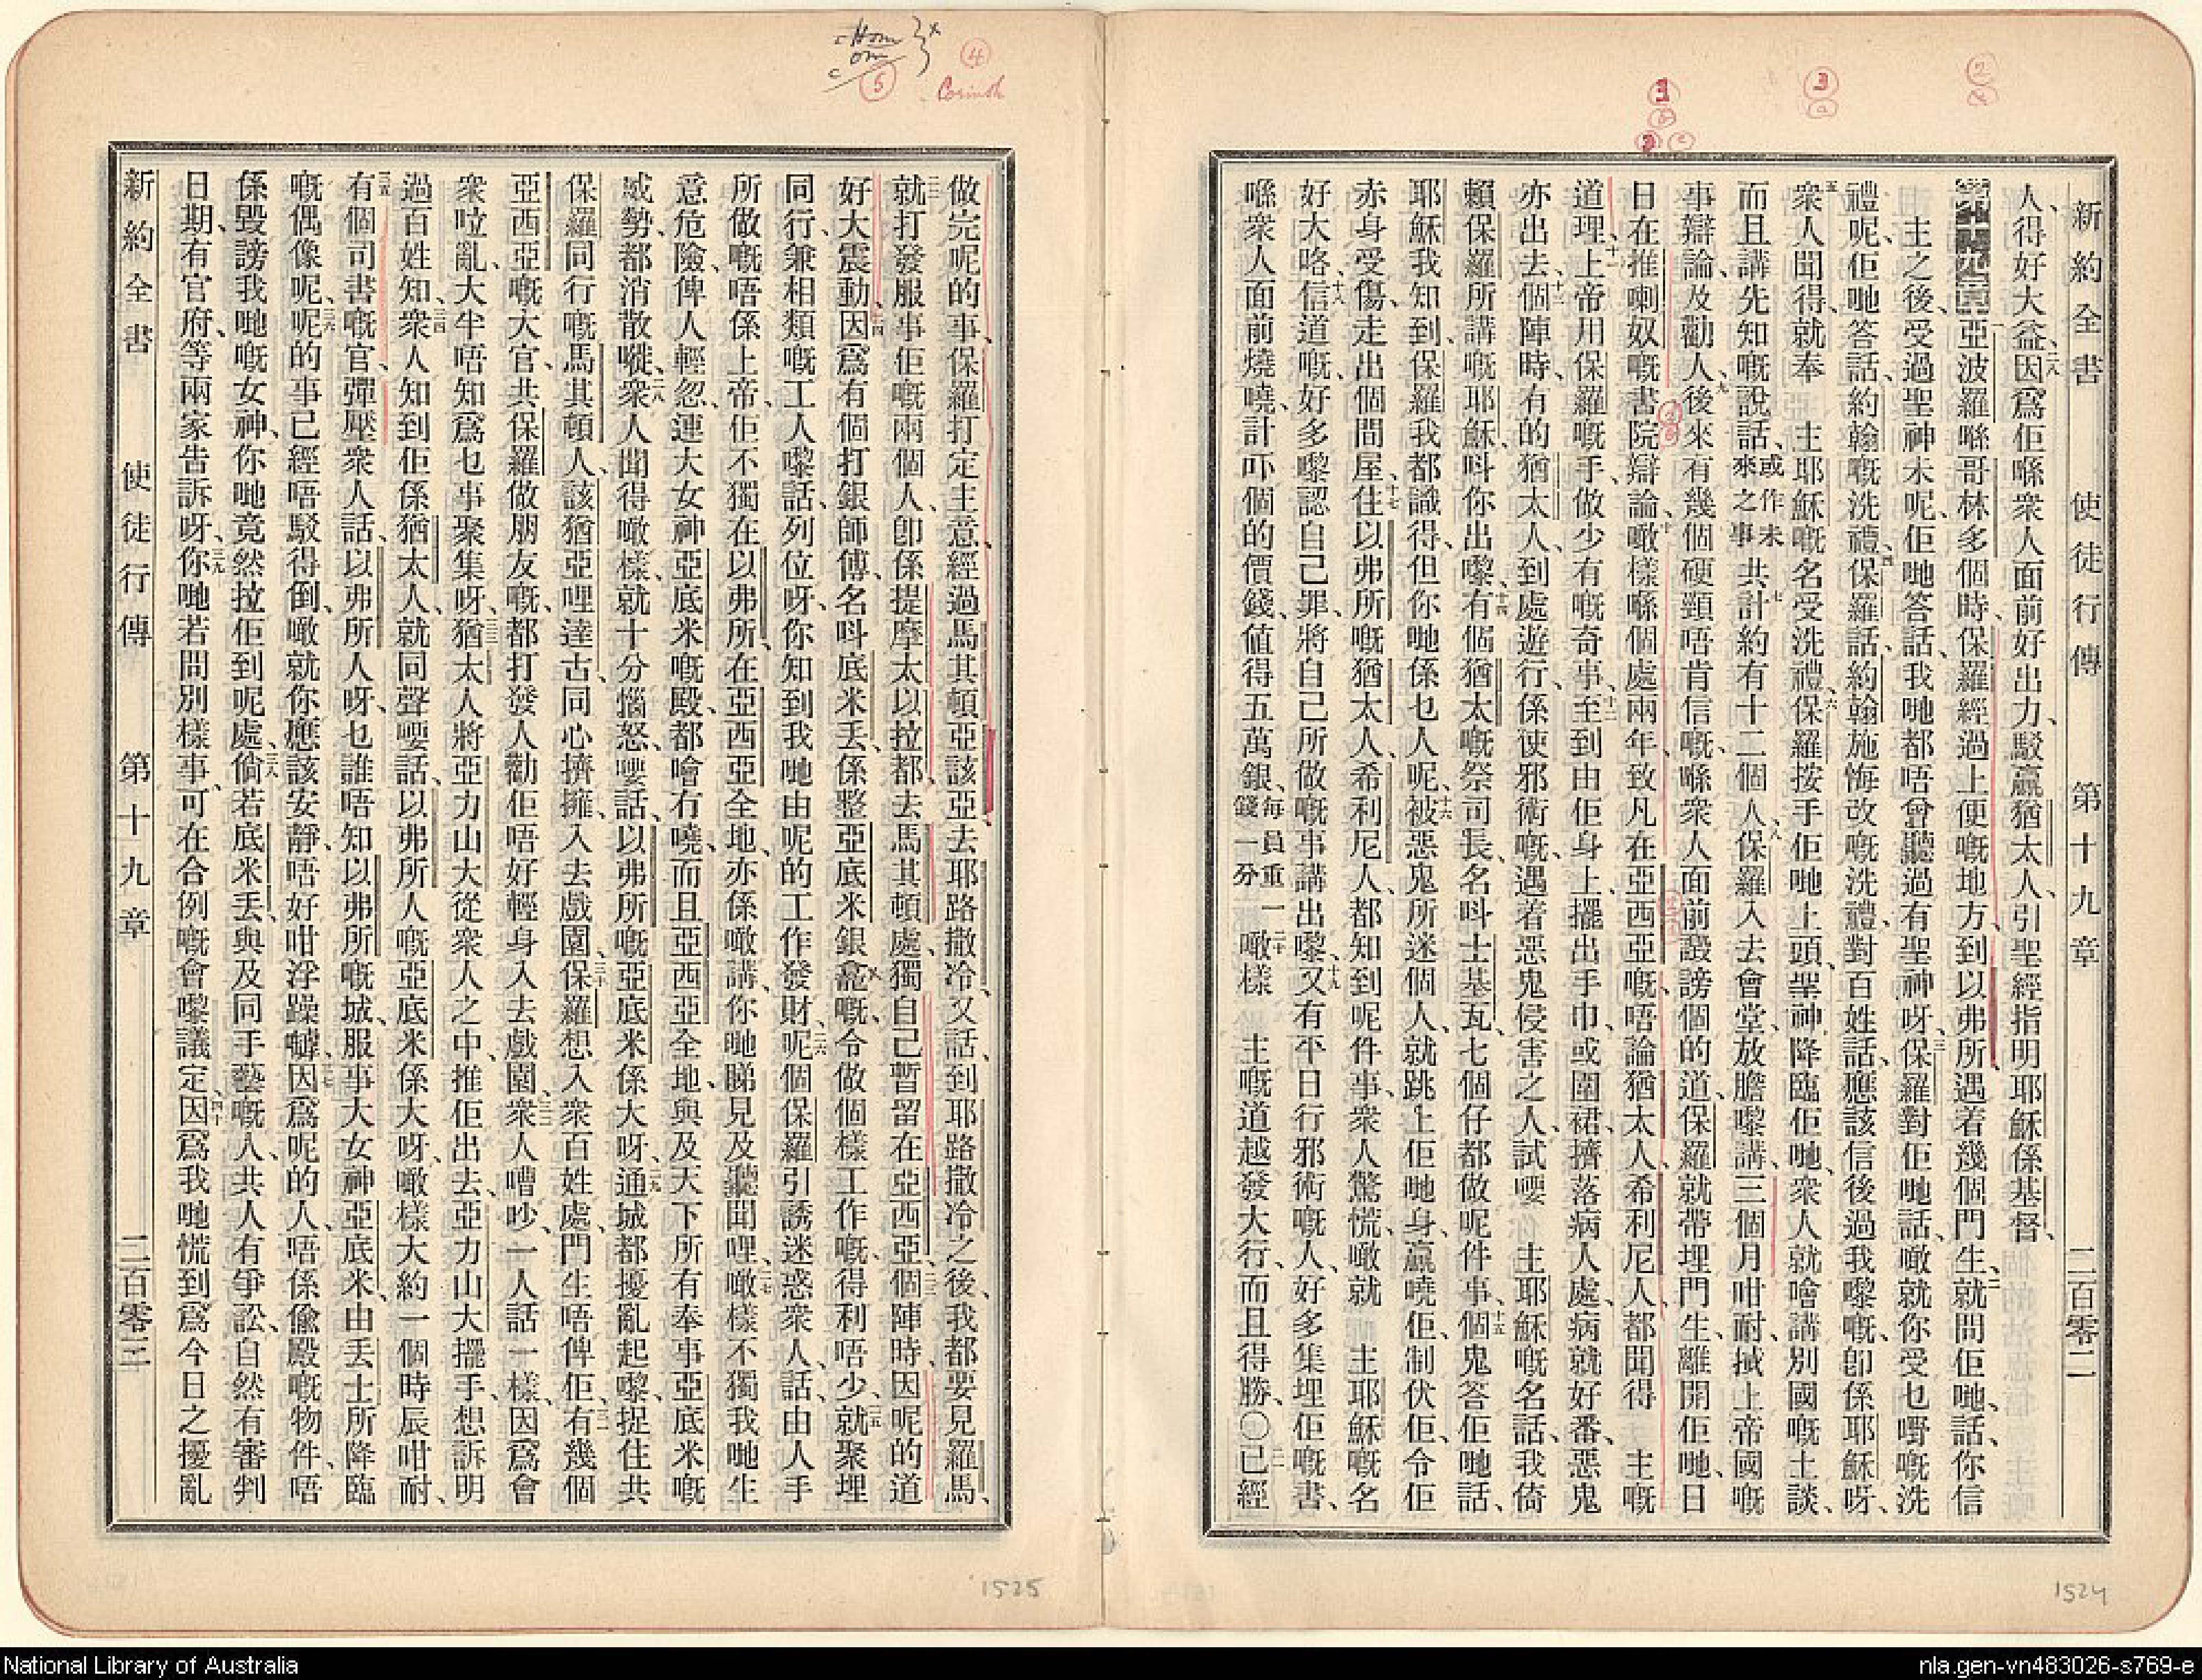 新約全書 使徒行傳 第十九章 二百零二
人、得好大益、二八因爲佢喺衆人面前好出力、駁贏猶太人、引聖經指明耶穌係基督、
第十九章 一亞波羅喺哥林多個時、保羅經過上便嘅地方、到以弗所遇着幾個門生、二就問佢哋、話、你信
主之後、受過聖神未呢、佢哋答話、我哋都唔曾聽過有聖神呀、三保羅對佢哋話、噉就你受乜嘢嘅洗
禮呢、佢哋答話、約翰嘅洗禮、四保羅話、約翰施悔改嘅洗禮、對百姓話、應該信後過我嚟嘅、卽係耶穌呀、
五衆人聞得、就奉 主耶穌嘅名受洗禮、六保羅按手佢哋上頭、聖神降臨佢哋、衆人就噲講別國嘅土談、
而且講先知嘅說話、或作未來之事 七共計約有十二個人、八保羅入去會堂、放膽嚟講、三個月咁耐、搣上帝國嘅
事辯論、及勸人、九後來有幾個硬頸唔肯信嘅、喺衆人面前譭謗個的道、保羅就帶埋門生、離開佢哋、日
日在推喇奴嘅書院辯論、十噉樣喺個處兩年、致凡在亞西亞嘅、唔論猶太人、希利尼人、都聞得 主嘅
道理、十一上帝用保羅嘅手、做少有嘅奇事、十二至到由佢身上、擺出手巾、或圍裙、擠落病人處、病就好番、惡鬼
亦出去、十三個陣時、有的猶太人、到處遊行、係使邪術嘅、遇着惡鬼侵害之人、試嘤 主耶穌嘅名話、我倚
賴保羅所講嘅耶穌、呌你出嚟、十四有個猶太嘅祭司長、名呌士基瓦、七個仔都做呢件事、十五個鬼答佢哋話、
耶穌我知到、保羅我都識得、但你哋係乜人呢、十六被惡鬼所迷個人、就跳上佢哋身、贏曉佢、制伏佢、令佢
赤身受傷、走出個間屋、十七住以弗所嘅猶太人、希利尼人、都知到呢件事、衆人驚慌、噉就 主耶穌嘅名
好大咯、十八信道嘅、好多嚟認自己罪、將自己所做嘅事講出嚟、十九又有平日行邪術嘅人、好多集埋佢嘅書、
喺衆人面前燒曉、計吓個的價錢、値得五萬銀、每員重一錢一分 二十噉樣 主嘅道越發大行、而且得勝、〇二一已經
做完呢的事、保羅打定主意、經過馬其頓亞該亞、去耶路撒冷、又話、到耶路撒冷之後、我都要見羅馬、
二二就打發服事佢嘅兩個人、卽係提摩太以拉都、去馬其頓處、獨自己暫留在亞西亞、二三個陣時、因呢的道
好大震動、二四因爲有個打銀師傅、名呌底米丟、係整亞底米銀龕嘅、令做個樣工作嘅、得利唔少、二五就聚埋
同行、兼相類嘅工人嚟話、列位呀、你知到我哋由呢的工作發財、二六呢個保羅引誘迷惑衆人、話、由人手
所做嘅唔係上帝、佢不獨在以弗所、在亞西亞全地、亦係噉講、你哋睇見及聽聞哩、二七噉樣不獨我哋生
意危險、俾人輕忽、連大女神亞底米嘅殿、都噲冇曉、而且亞西亞全地、與及天下所有奉事亞底米嘅
威勢、都消散嘥、二八衆人聞得噉樣、就十分惱怒、嘤話、以弗所嘅亞底米係大呀、二九通城都擾亂起嚟、捉住共
保羅同行嘅馬其頓人、該猶亞哩達古、同心擠擁、入去戲園、三十保羅想入衆百姓處、門生唔俾佢、三一有幾個
亞西亞嘅大官、共保羅做朋友嘅、都打發人勸佢唔好輕身入去戲園、三二衆人嘈吵、一人話一樣、因爲會
衆吰亂、大半唔知爲乜事聚集呀、三三猶太人將亞力山大從衆人之中、推佢出去、亞力山大擺手、想訴明
過百姓知、三四衆人知到佢係猶太人、就同聲嘤話、以弗所人嘅亞底米係大呀、噉樣大約一個時辰咁耐、
三五有個司書嘅官、彈壓衆人話、以弗所人呀、乜誰唔知以弗所嘅城、服事大女神亞底米、由丟士所降臨
嘅偶像呢、三六呢的事已經唔駁得倒、噉就你應該安靜、唔好咁浮躁嘑、三七因爲呢的人、唔係偸殿嘅物件、唔
係毀謗我哋嘅女神、你哋竟然拉佢到呢處、三八倘若底米丟、與及同手藝嘅人、共人有爭訟、自然有審判
日期、有官府、等兩家吿訴呀、三九你哋若問別樣事、可在合例嘅會嚟議定、四十因爲我哋慌到爲今日之擾亂
新約全書 使徒行傳 第十九章 二百零三
④
Corinth
⑤
1525
1524
National Library of Australia
nla.gen-vn483026-s769-e